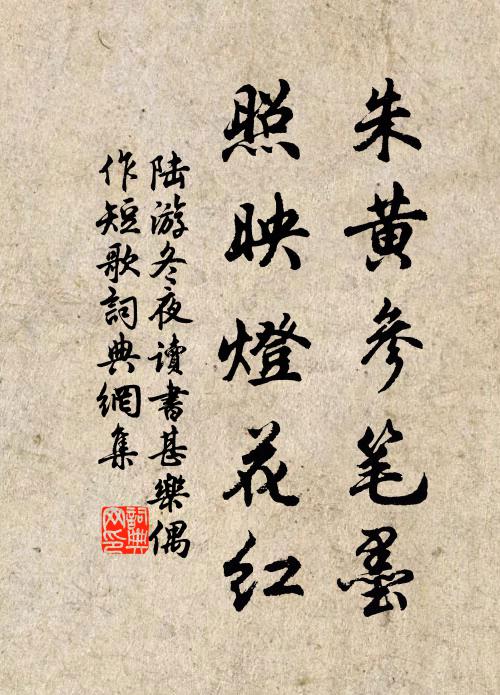 朱黄參笔墨
照映燈花紅
陆游冬夜讀書甚樂偶
作短歌詞典網集